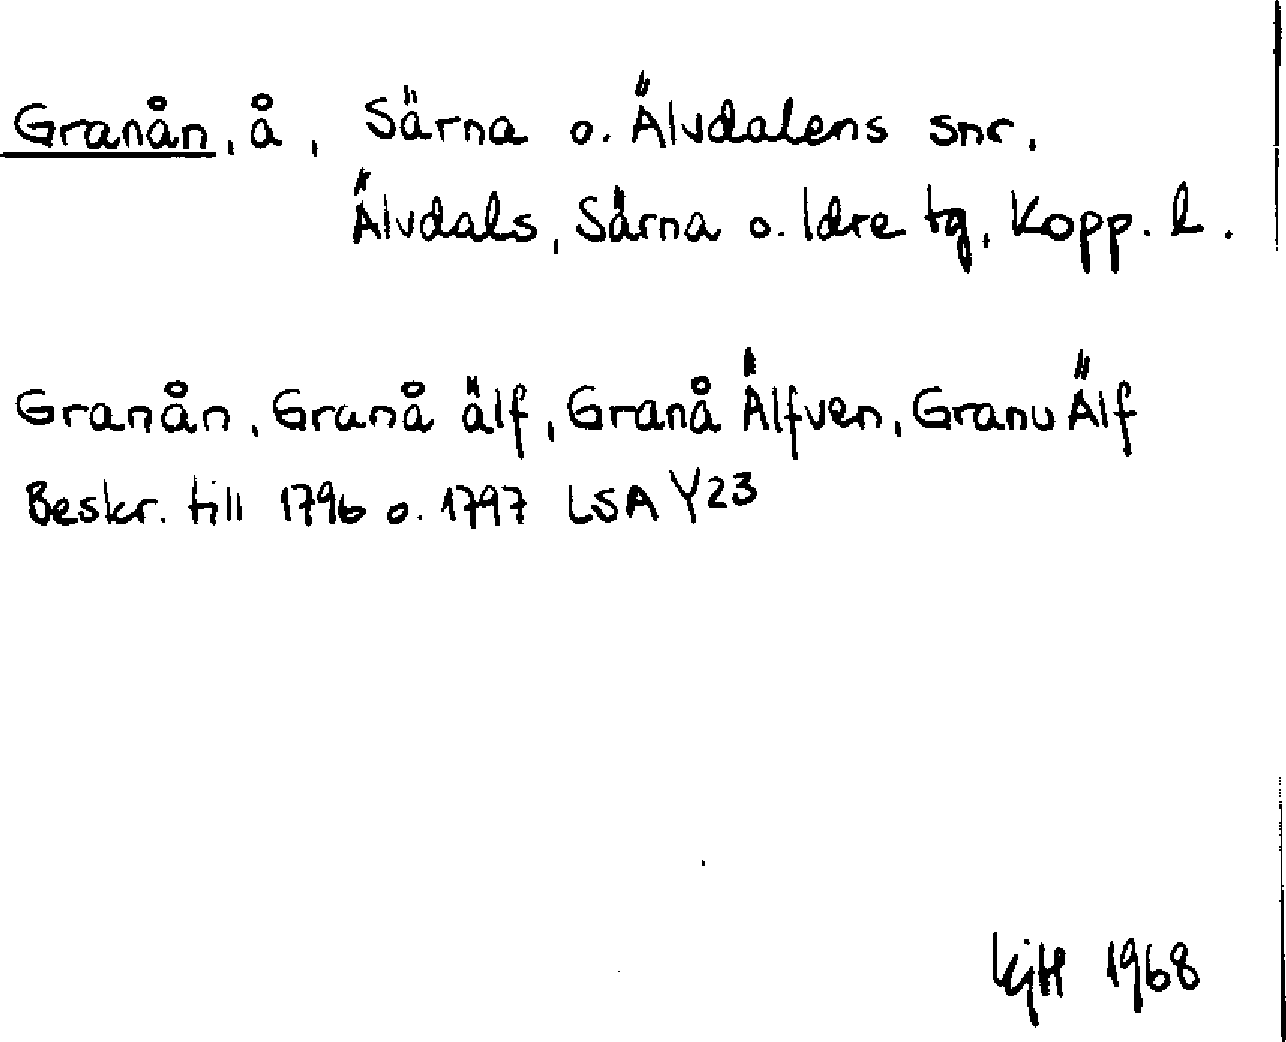 Granån, å, Särna o. Älvdalens snr.
Älvdals, Särna o. Idre tg, Kopp. l.
Granån, Granå älf, Granå Älfven, Granu Älf
Beskr. till 1796 o. 1797 LSA Y23
KjH 1968